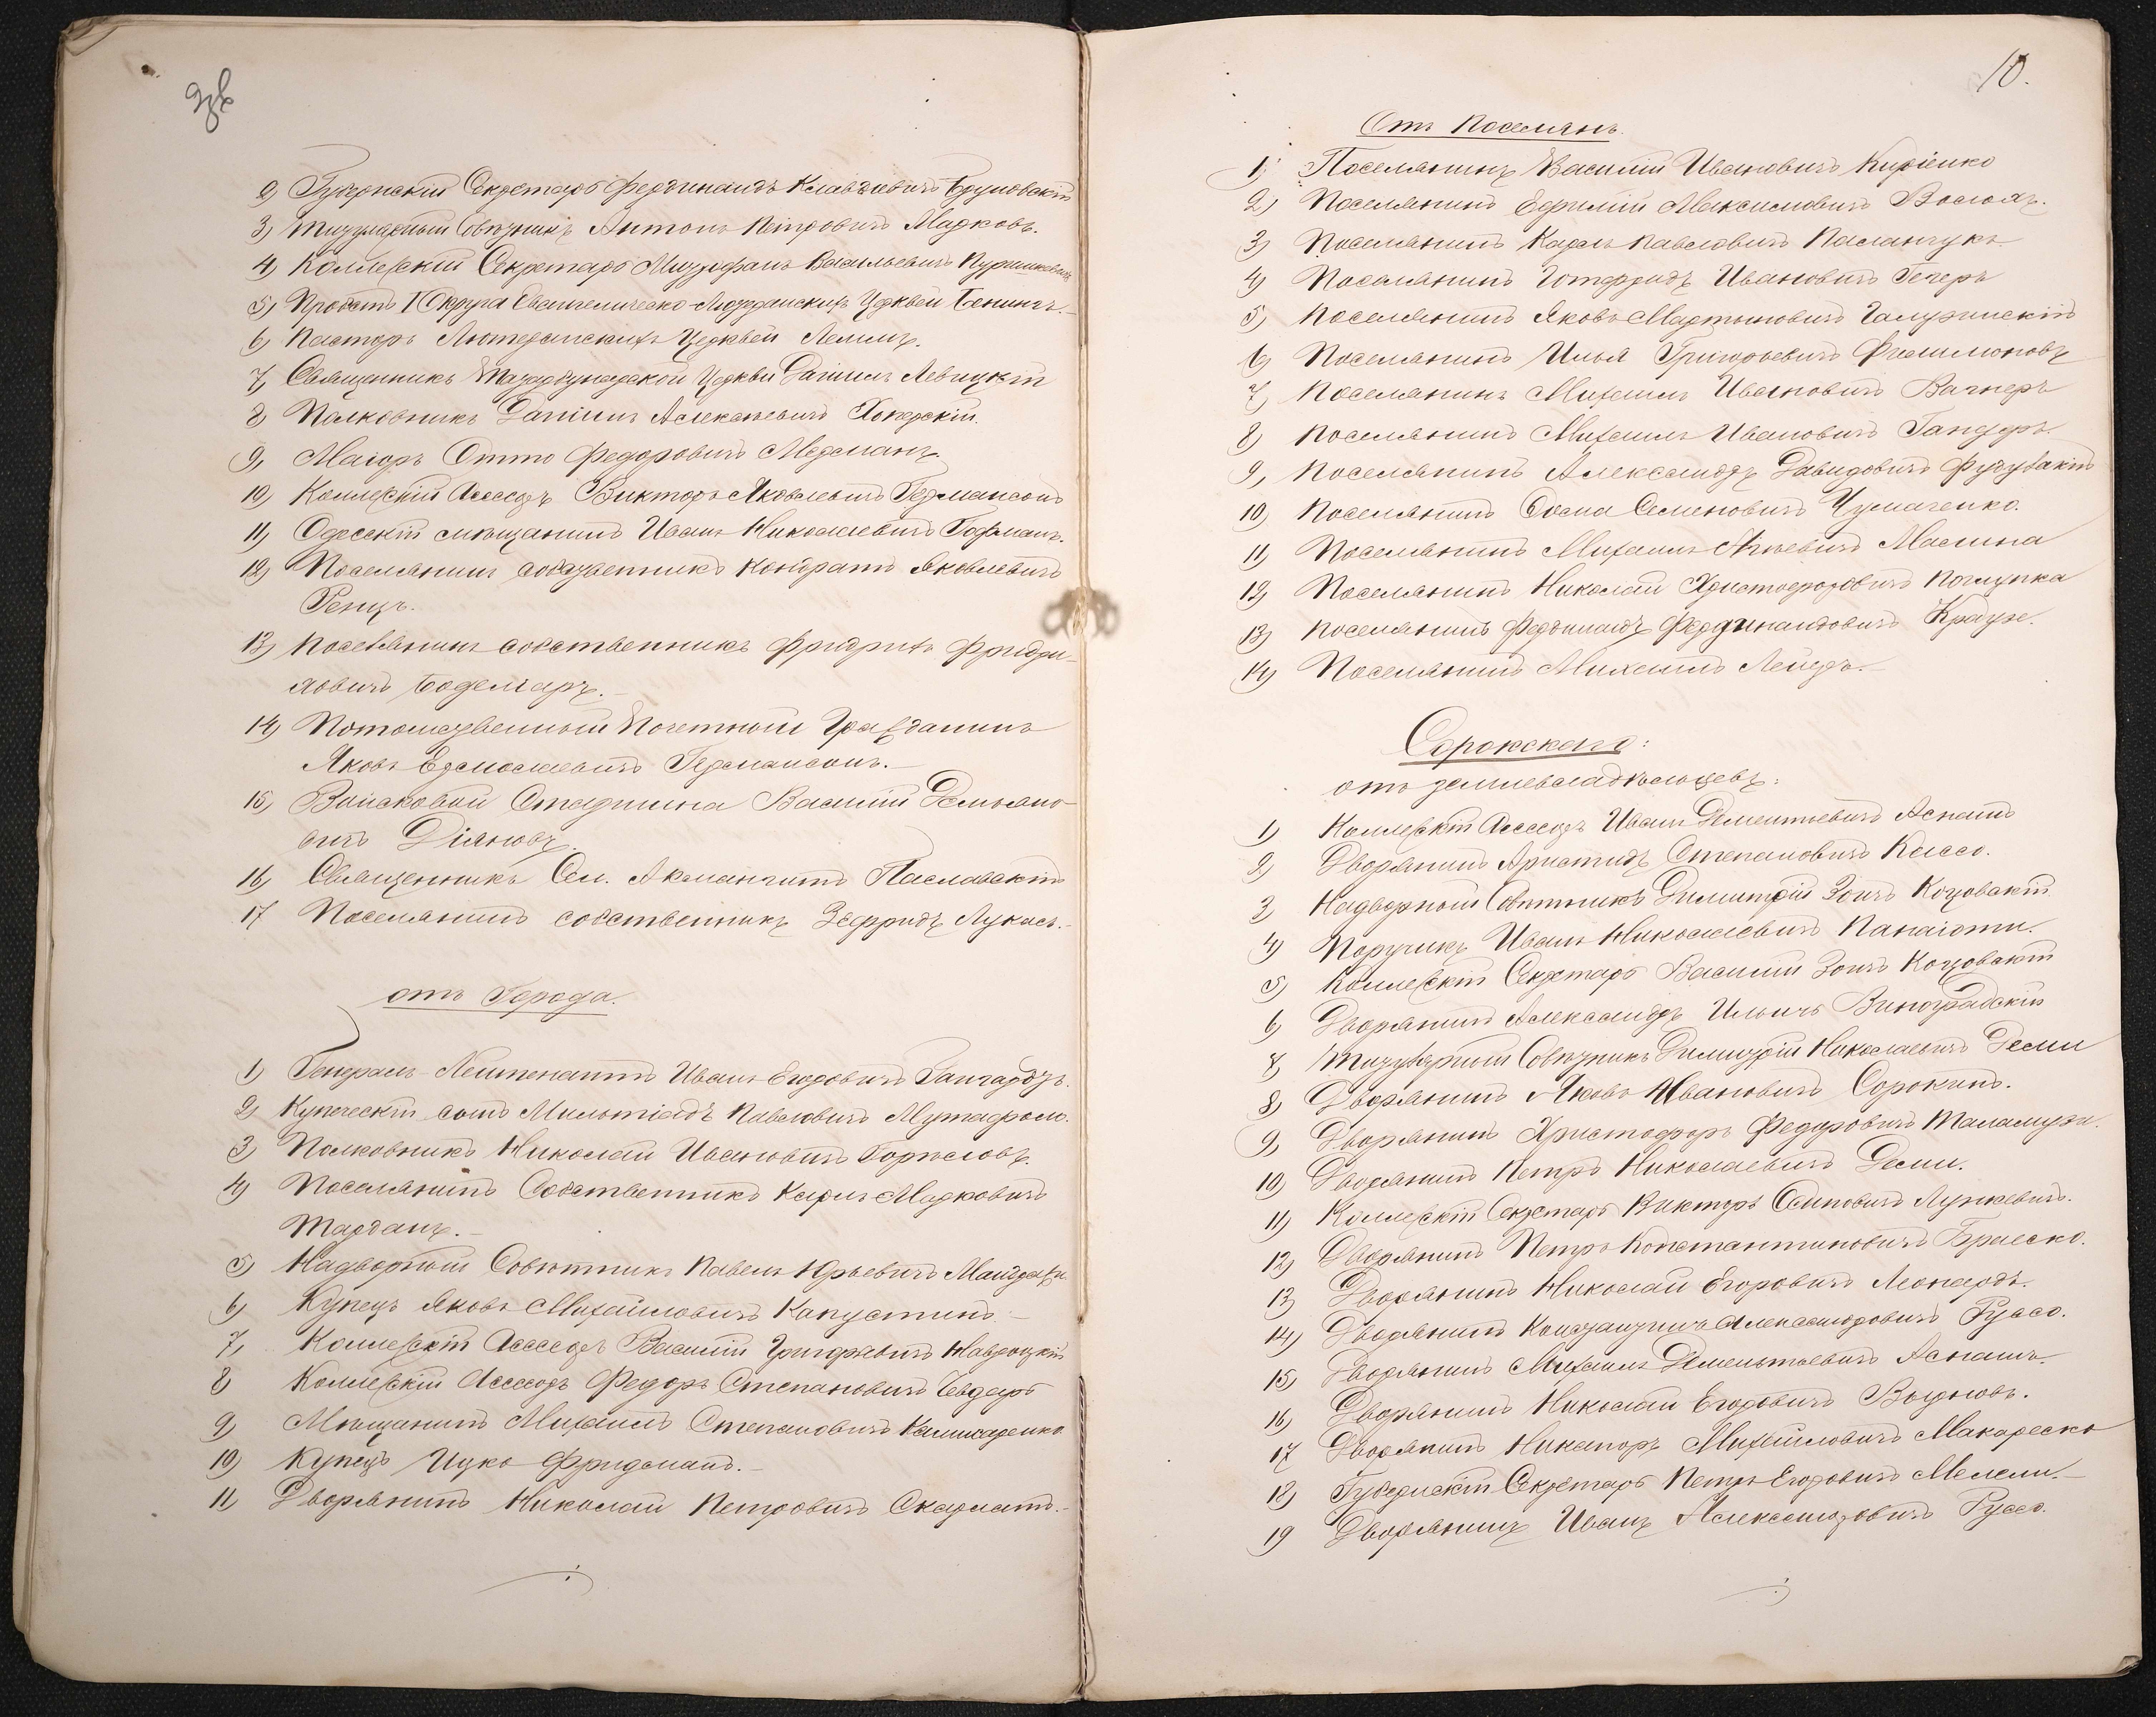 9об
2) Губернскій Секретарь Фердинандъ Клавдіевичъ Бруновскій
3) Титулярный Совѣтникъ Антонъ Петровичъ Марковъ.
4) Коллежскій Секретарь Митрофанъ Васильевичъ Пуришкевичъ
5) Пробстъ I Округа Евангелическо-Лютеранскихъ Церквей Бенингъ.
6) Пасторъ Лютеранскихъ Церквей Лемъ.
7) Священникъ Татарбунарской Церкви Даніилъ Левицкій
8) Полковникъ Даніилъ Алексѣевичъ Хонерскій.
9) Маіоръ Отто Федоровичъ Медеманъ.
10) Коллежскій Ассесоръ Викторъ Яковлевичъ Германсонъ
11) Одесскій мѣщанинъ Иванъ Николаевичъ Гофманъ.
12) Поселянинъ собственникъ Кондратъ Яковлевичъ
Ренцъ.
13) Поселянинъ собственникъ Фридрихъ Фридри-
ховичъ Бодемаръ.
14) Потомственный Почетный Гражданинъ
Яковъ Германсонъ.
15) Войсковой Старшина Василій Демьяно-
вичъ Діяновъ.
16) Священникъ Сел. Акмангитъ Паславскій
17 Поселянинъ собственникъ Зефридъ Лукасъ.
отъ Города.
1) Генералъ-Лейтенантъ Иванъ Егоровичъ Гангардтъ.
2) Купеческій сынъ Мильтіадъ Павловичъ Мутафоло.
3) Полковникъ Николай Ивановичъ Гориславъ.
4) Поселянинъ Собственникъ Карлъ Марковичъ
Тарданъ.
5) Надворный Совѣтникъ Павелъ Юрьевичъ Мандражи
6) Купецъ Яковъ Михайловичъ Капустинъ.
7, Коллежскій Ассесоръ Василій Григорьевичъ Навроцкій
8) Коллежскій Ассесоръ Федоръ Степановичъ Чевдарь
9) Мѣщанинъ Михаилъ Степановичъ Камшаренко
10) Купецъ Ицко Фридманъ.
11) Дворянинъ Николай Петровичъ Скарлатъ.
10.
Отъ Поселянъ.
1) Поселянинъ Василій Ивановичъ Киріенко
2) Поселянинъ Ефимій Максимовичъ Восіолъ.
3) Поселянинъ Карлъ Павловичъ Паланчукъ
4) Поселянинъ Готфридъ Ивановичъ Гегеръ
5) Поселянинъ Яковъ Мартыновичъ Галужинскій
6) Поселянинъ Илья Григорьевичъ Филимоновъ
7) Поселянинъ Михаилъ Ивановичъ Вагнеръ
8) Поселянинъ Михаилъ Ивановичъ Ганцеръ.
9, Поселянинъ Александръ Давидовичъ Фурувскій
10) Поселянинъ Осипъ Семеновичъ Чумаченко.
11) Поселянинъ Михаилъ Агѣевичъ Маслина
12) Поселянинъ Николай Христофоровичъ Поглупка
13) Поселянинъ Фердинандъ Фердинандовичъ Краузе.
14) Поселянинъ Михаилъ Лейеръ.
Сорокскаго:
отъ землевладѣльцевъ:
1) Коллежскій Ассесоръ Иванъ Дементьевичъ Аснашъ
2) Дворянинъ Аристидъ Степановичъ Кассо.
3 Надворный Совѣтникъ Димитрій Зоичъ Коцовскій
4) Поручикъ Иванъ Николаевичъ Панаіоти.
5) Коллежскій Секретарь Василій Зоичъ Коцовскій
6) Дворянинъ Александръ Ильичъ Виноградскій
7) Титулярный Совѣтникъ Димитрій Николаевичъ Деми
8) Дворянинъ Яковъ Ивановичъ Сорокинъ.
9) Дворянинъ Христофоръ Федоровичъ Таламузи.
10) Дворянинъ Петръ Николаевичъ Деми.
11) Коллежскій Секретарь Викторъ Осиповичъ Лункевичъ.
12) Дворянинъ Петръ Константиновичъ Браеско.
13 Дворянинъ Николай Егоровичъ Леонардъ.
14) Дворянинъ Констандинъ Александровичъ Руссо.
15) Дворянинъ Михаилъ Дементьевичъ Аснашъ.
16) Дворянинъ Николай Егоровичъ Водновъ.
17 Дворянинъ Никаноръ Михайловичъ Макареско
18) Губернскій Секретарь Петръ Егоровичъ Мелели.
19 Дворянинъ Иванъ Александровичъ Руссо.